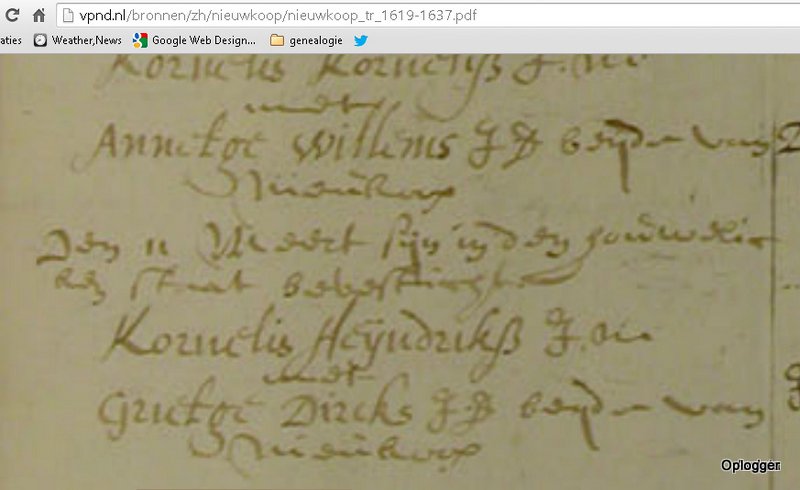 vpnd.nl/bronnen/zh/nieuwkoop/nieuwkoop_tr_1619-1637.pdf
aties Weather,News Google Web Design... genealogie
Kornelis Kornelisz J.
met
Annetge Willems J D beyde van
Nieukoop
Den 11 Meert sijn in den houwelic
ken staat bevesticht
Kornelis Heyndriksz J. m
met
Grietge Dircks J. D beyde van
Nieukoop
Oplogger